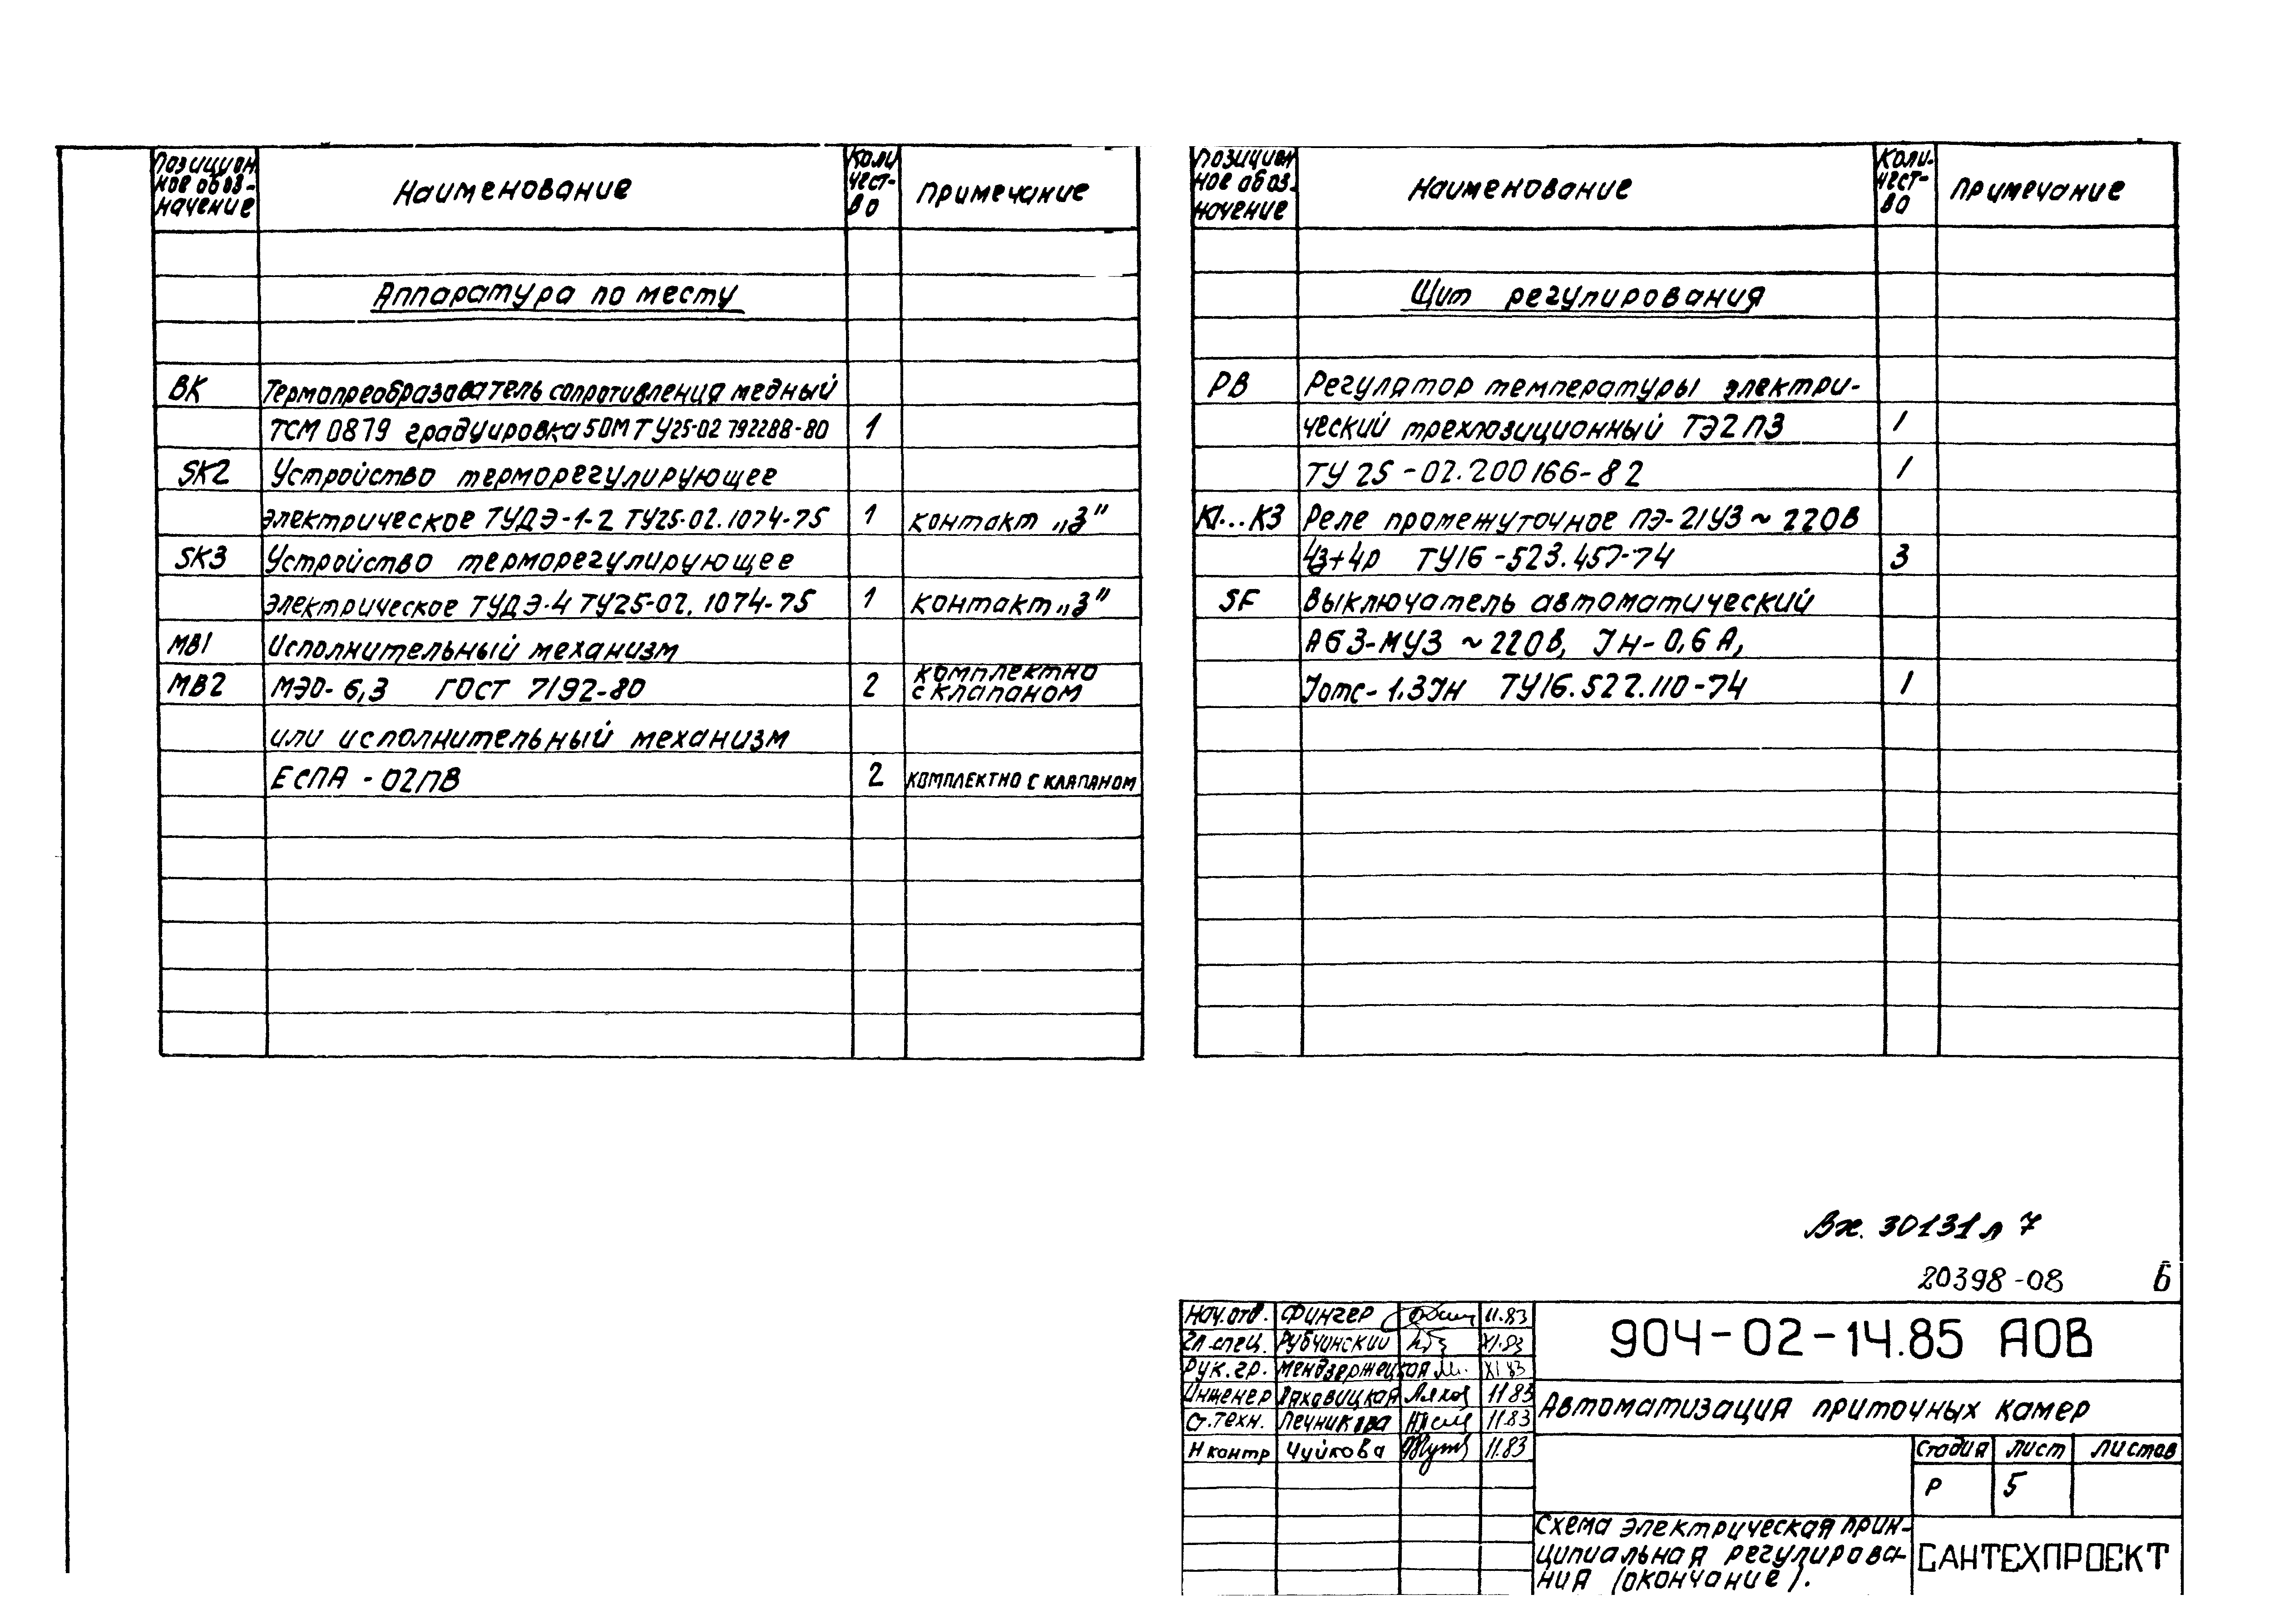 Позицион
ное обоз-
начение
Наименование
Коли
чест-
во
Примечание
Аппаратура по месту
ВК Термопреобразователь сопротивления медный
ТСМ 0879 градуировка 50М ТУ25-02 792288-80 1
SK2 Устройство терморегулирующее
электрическое ТУДЭ-1-2 ТУ25-02.1074-75 1 контакт „З"
SK3 Устройство терморегулирующее
электрическое ТУДЭ-4 ТУ25-02.1074-75 1 контакт „З"
МВ1 Исполнительный механизм
МВ2 МЭО-6,3 ГОСТ 7192-80 2 комплектно
с клапаном
или исполнительный механизм
ЕСПА-02ПВ 2 комплектно с клапаном
Позицион
ное обоз-
начение
Наименование
Коли-
чест-
во
Примечание
Щит регулирования
РВ Регулятор температуры электри-
ческий трехпозиционный ТЭ2П3 1
ТУ 25-02.200166-82 1
К1...К3 Реле промежуточное ПЭ-21У3 ~ 220В
4з+4р ТУ16-523.457-74 3
SF Выключатель автоматический
А63-МУ3 ~220В, Jн-0,6А,
Jотс-1.3Jн ТУ16.522.110-74 1
Вх. 30131 л 7
20398-08 6
Нач.отд. Фингер 11.83
Гл.спец. Рубчинский XI.83
Рук.гр. Мендзержецкая XI 83
Инженер Ляховицкая 11 83
Ст.техн. Печникова 11.83
Н контр Чуйкова 11.83
904-02-14.85 АОВ
Автоматизация приточных камер
Стадия Лист Листов
Р 5
Схема электрическая прин-
ципиальная регулирова-
ния (окончание).
САНТЕХПРОЕКТ